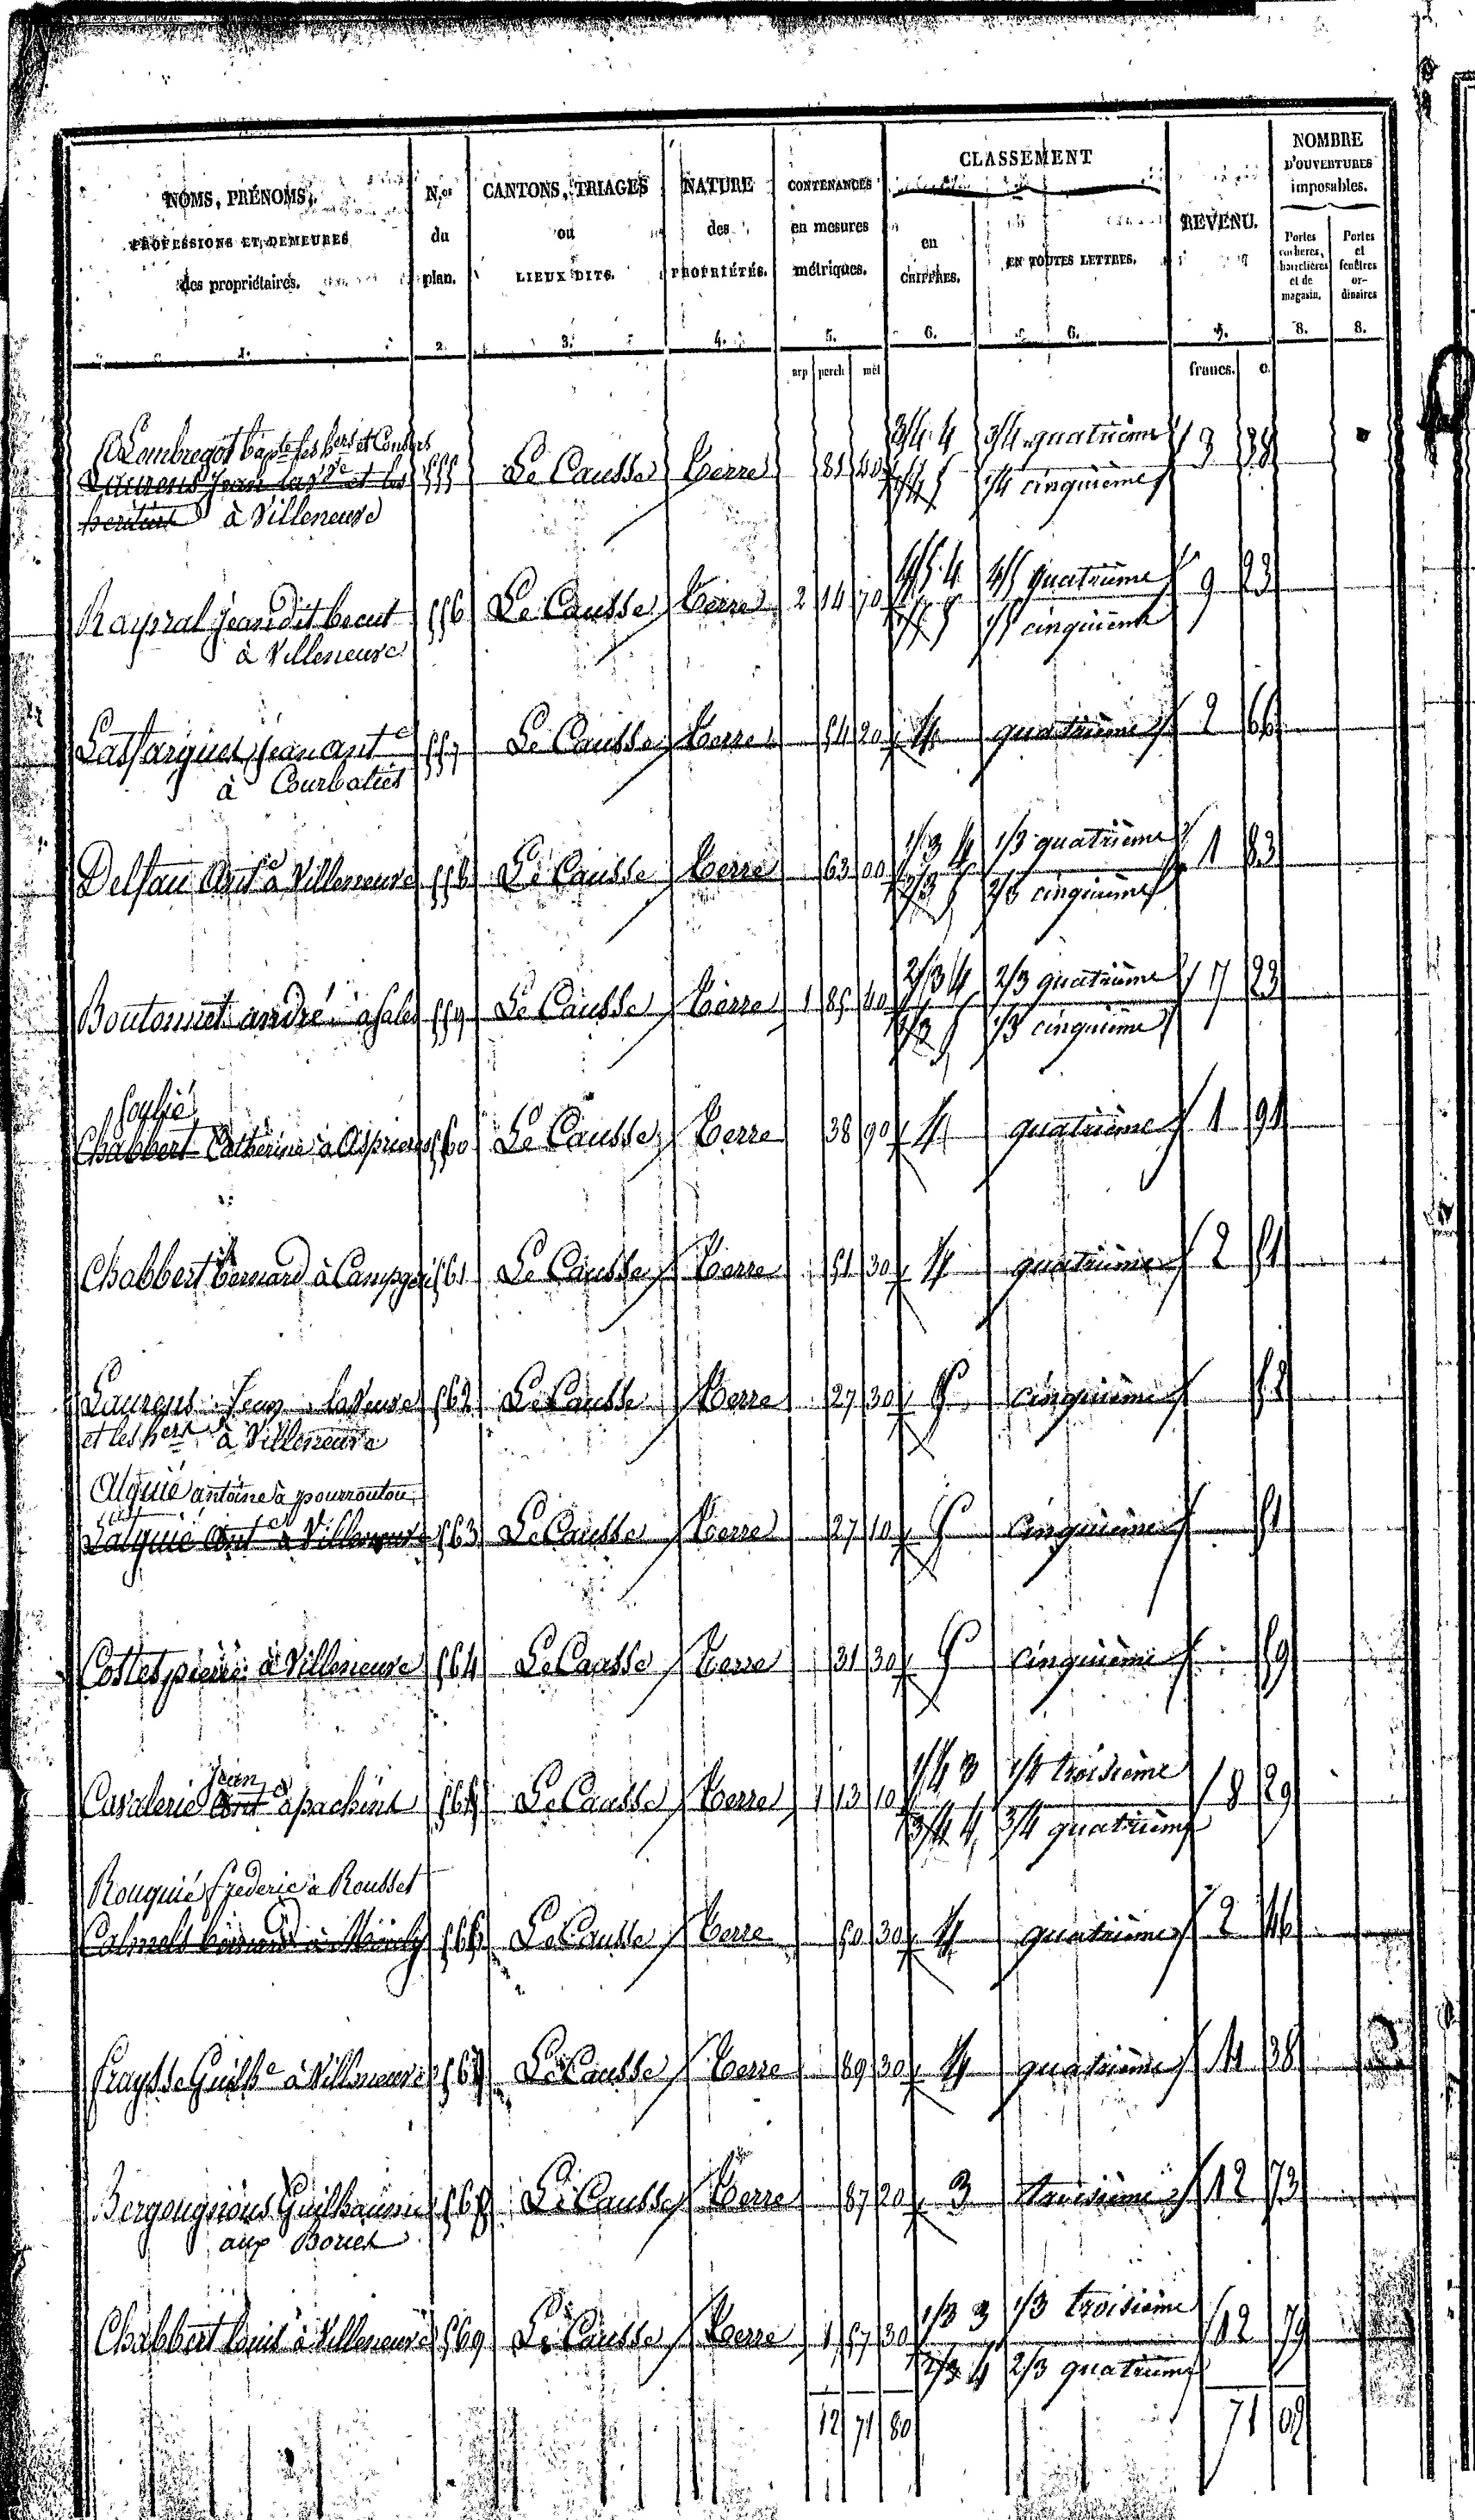 NOMS, PRÉNOMS, PROFESSIONS ET DEMEURES des propriétaires.
N.os du plan.
CANTONS, TRIAGES ou LIEUX DITS.
NATURE des PROPRIÉTÉS.
CONTENANCES en mesures métriques.
CLASSEMENT
en CHIFFRES.
EN TOUTES LETTRES.
REVENU.
NOMBRE D'OUVERTURES imposables.
Portes cocheres, bastelières et de magasin.
Portes et fenêtres or-dinaires
1. 2. 3. 4. 5. 6. 6. 7. 8. 8.
arp perch mèt francs. c.
555 Le Causse terre 81 40 3/4 4 3/4 quatrième 3 38
1/4 5 1/4 cinquième
à Villeneuve
Raynal Jean dit 556 Le Causse terre 2 14 70 4/5 4 4/5 quatrième 9 23
1/5 5 1/5 cinquième
à Villeneuve
Laffargues Jean ant.e 557 Le Causse terre 54 20 4 quatrième 2 66
à Courbatiès
Delfau Ant.e à Villeneuve 558 Le Causse terre 63 00 1/3 4 1/3 quatrième 1 83
2/3 5 2/3 cinquième
Boutonnet andré à Sales 559 Le Causse terre 1 85 40 2/3 4 2/3 quatrième 7 23
1/3 5 1/3 cinquième
Soulié
Chabbert Catherine à Asprieres 560 Le Causse terre 38 90 4 quatrième 1 91
Chabbert Bernard à 561 Le Causse terre 51 30 4 quatrième 2 51
Laurens Jean la veuve 562 Le Causse terre 27 30 5 cinquième 52
et les hers à Villeneuve
Alquié antoine à
Lalquié Ant.e à Villeneuve 563 Le Causse terre 27 10 5 cinquième 51
Costes pierre à Villeneuve 564 Le Causse terre 31 30 5 cinquième 59
Jean
Cavalerie Ant.e à pachins 565 Le Causse terre 1 13 10 1/4 3 1/4 troisième 8 29
3/4 4 3/4 quatrième
Rouquié frederic à Rousset
Calmels 566 Le Causse terre 50 30 4 quatrième 2 46
Fraysse Guilh.e à Villeneuve 567 Le Causse terre 89 30 4 quatrième 4 38
Bergougnious Guilhaume 568 Le Causse terre 87 20 3 troisième 12 73
aux Bories
Chabbert louis à Villeneuve 569 Le Causse terre 1 57 30 1/3 3 1/3 troisième 12 79
2/3 4 2/3 quatrième
12 71 80 71 02